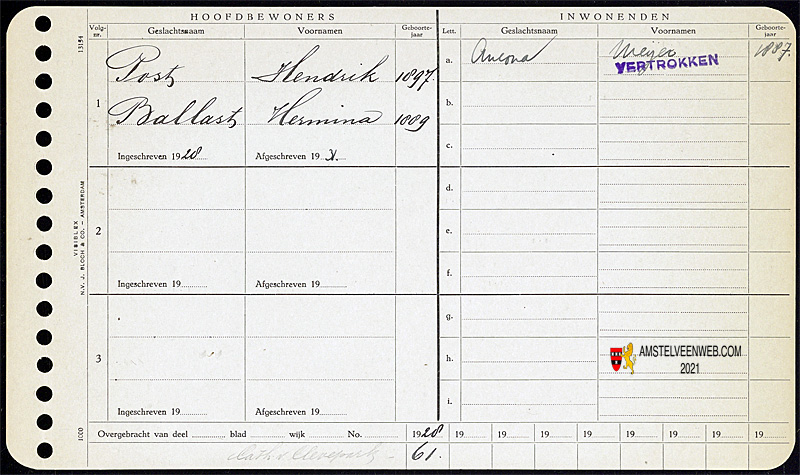 HOOFDBEWONERS
INWONENDEN
Volg-nr. Geslachtsnaam Voornamen Geboorte-jaar
Lett. Geslachtsnaam Voornamen Geboorte-jaar
13154
1
Post Hendrik 1897
Ballast Hermina 1889
Ingeschreven 1928 Afgeschreven 19
a. Ancona Meijer 1887.
VERTROKKEN
b.
c.
2
Ingeschreven 19 Afgeschreven 19
d.
e.
f.
3
Ingeschreven 19 Afgeschreven 19
g.
h.
i.
AMSTELVEENWEB.COM
2021
VISIBLEX
N.V. J. BLOCH & CO. – AMSTERDAM
1000
Overgebracht van deel blad wijk No. 1928 19 19 19 19 19 19 19 19
61.